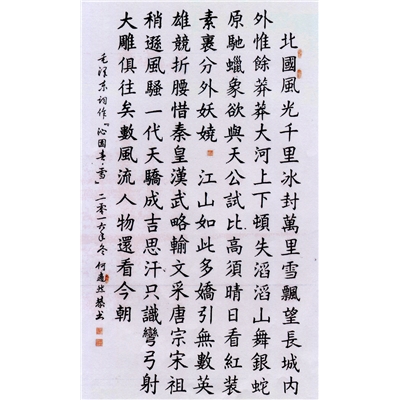 北國風光千里冰封萬里雪飄望長城內
外惟餘莽莽大河上下頓失滔滔山舞銀蛇
原馳蠟象欲與天公試比高須晴日看紅裝
素裹分外妖嬈 江山如此多嬌引無數英
雄競折腰惜秦皇漢武略輸文采唐宗宋祖
稍遜風騷一代天驕成吉思汗只識彎弓射
大雕俱往矣數風流人物還看今朝
毛泽东词作『沁园春·雪』二零一六年冬 何 恭书